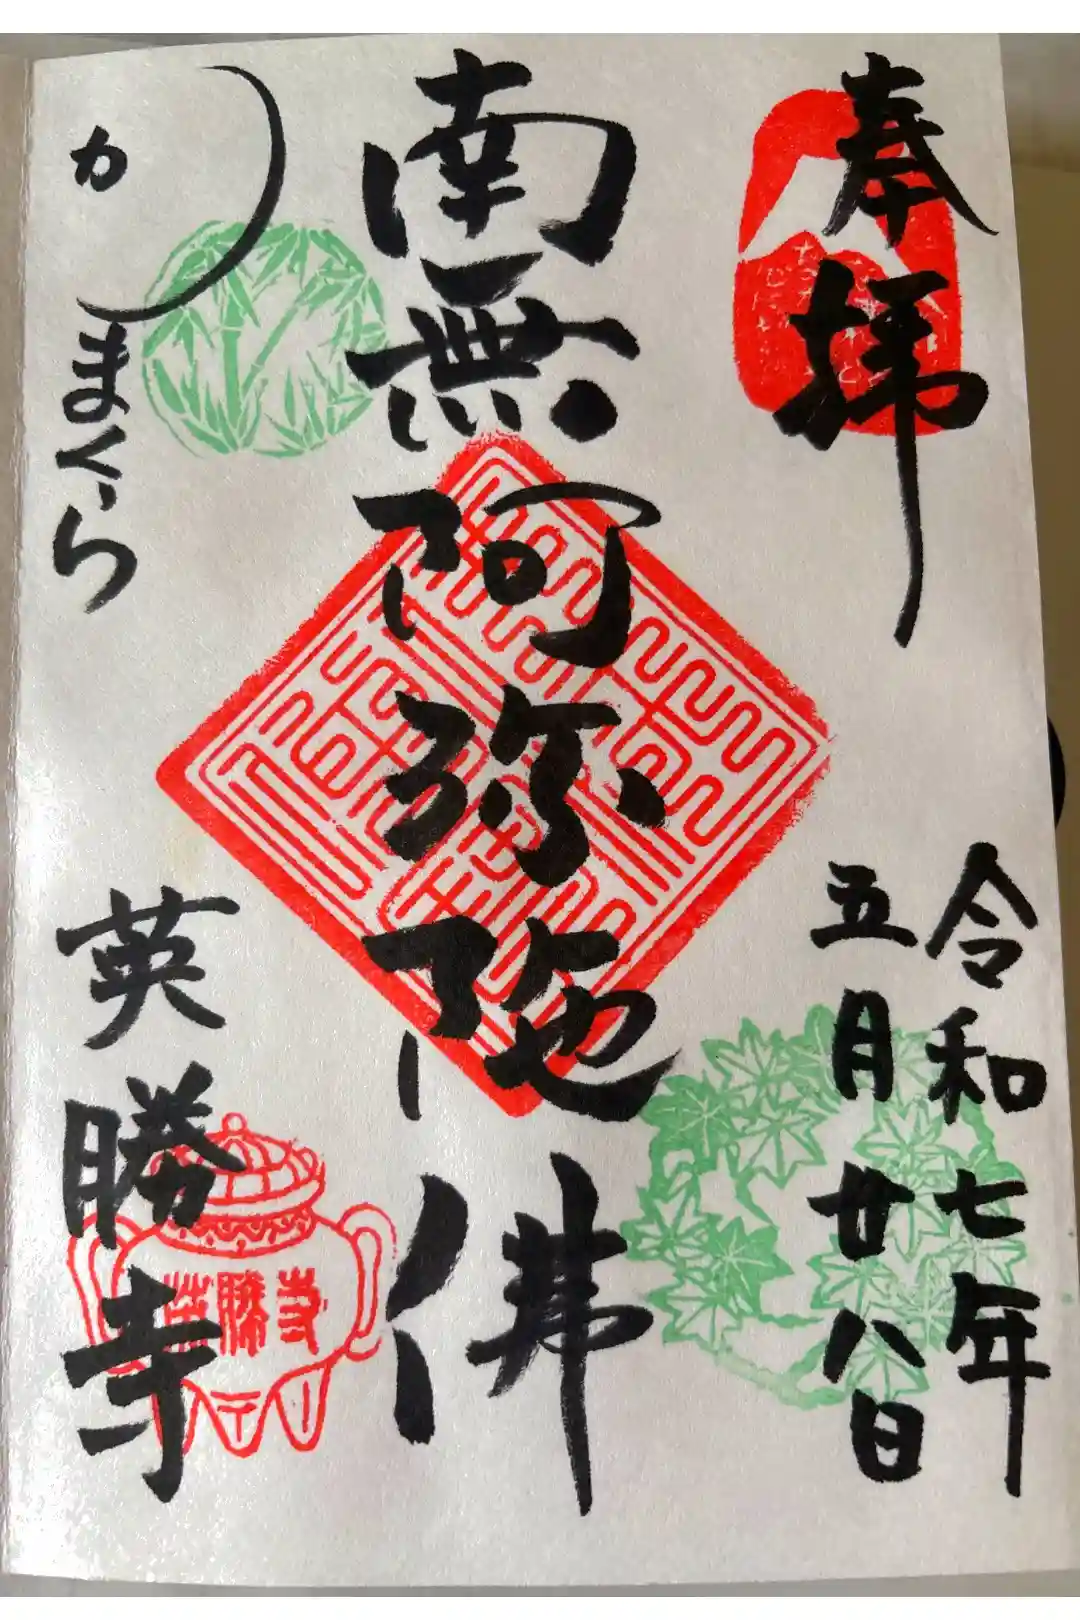 奉拝
令和七年
五月廿八日
南無阿弥陀佛
かまくら
英勝寺
英勝寺